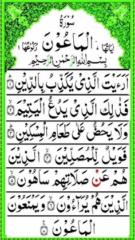 سُورَةُ
الْمَاعُوْنَ
بِسْمِ اللّٰهِ الرَّحْمٰنِ الرَّحِيْمِ
اَرَءَيْتَ الَّذِيْ يُكَذِّبُ بِالدِّيْنِ
فَذٰلِكَ الَّذِيْ يَدُعُّ الْيَتِيْمَ
وَلَا يَحُضُّ عَلٰى طَعَامِ الْمِسْكِيْنِ
فَوَيْلٌ لِّلْمُصَلِّيْنَ الَّذِيْنَ
هُمْ عَنْ صَلَاتِهِمْ سَاهُوْنَ
الَّذِيْنَ هُمْ يُرَآءُوْنَ وَيَمْنَعُوْنَ
الْمَاعُوْنَ